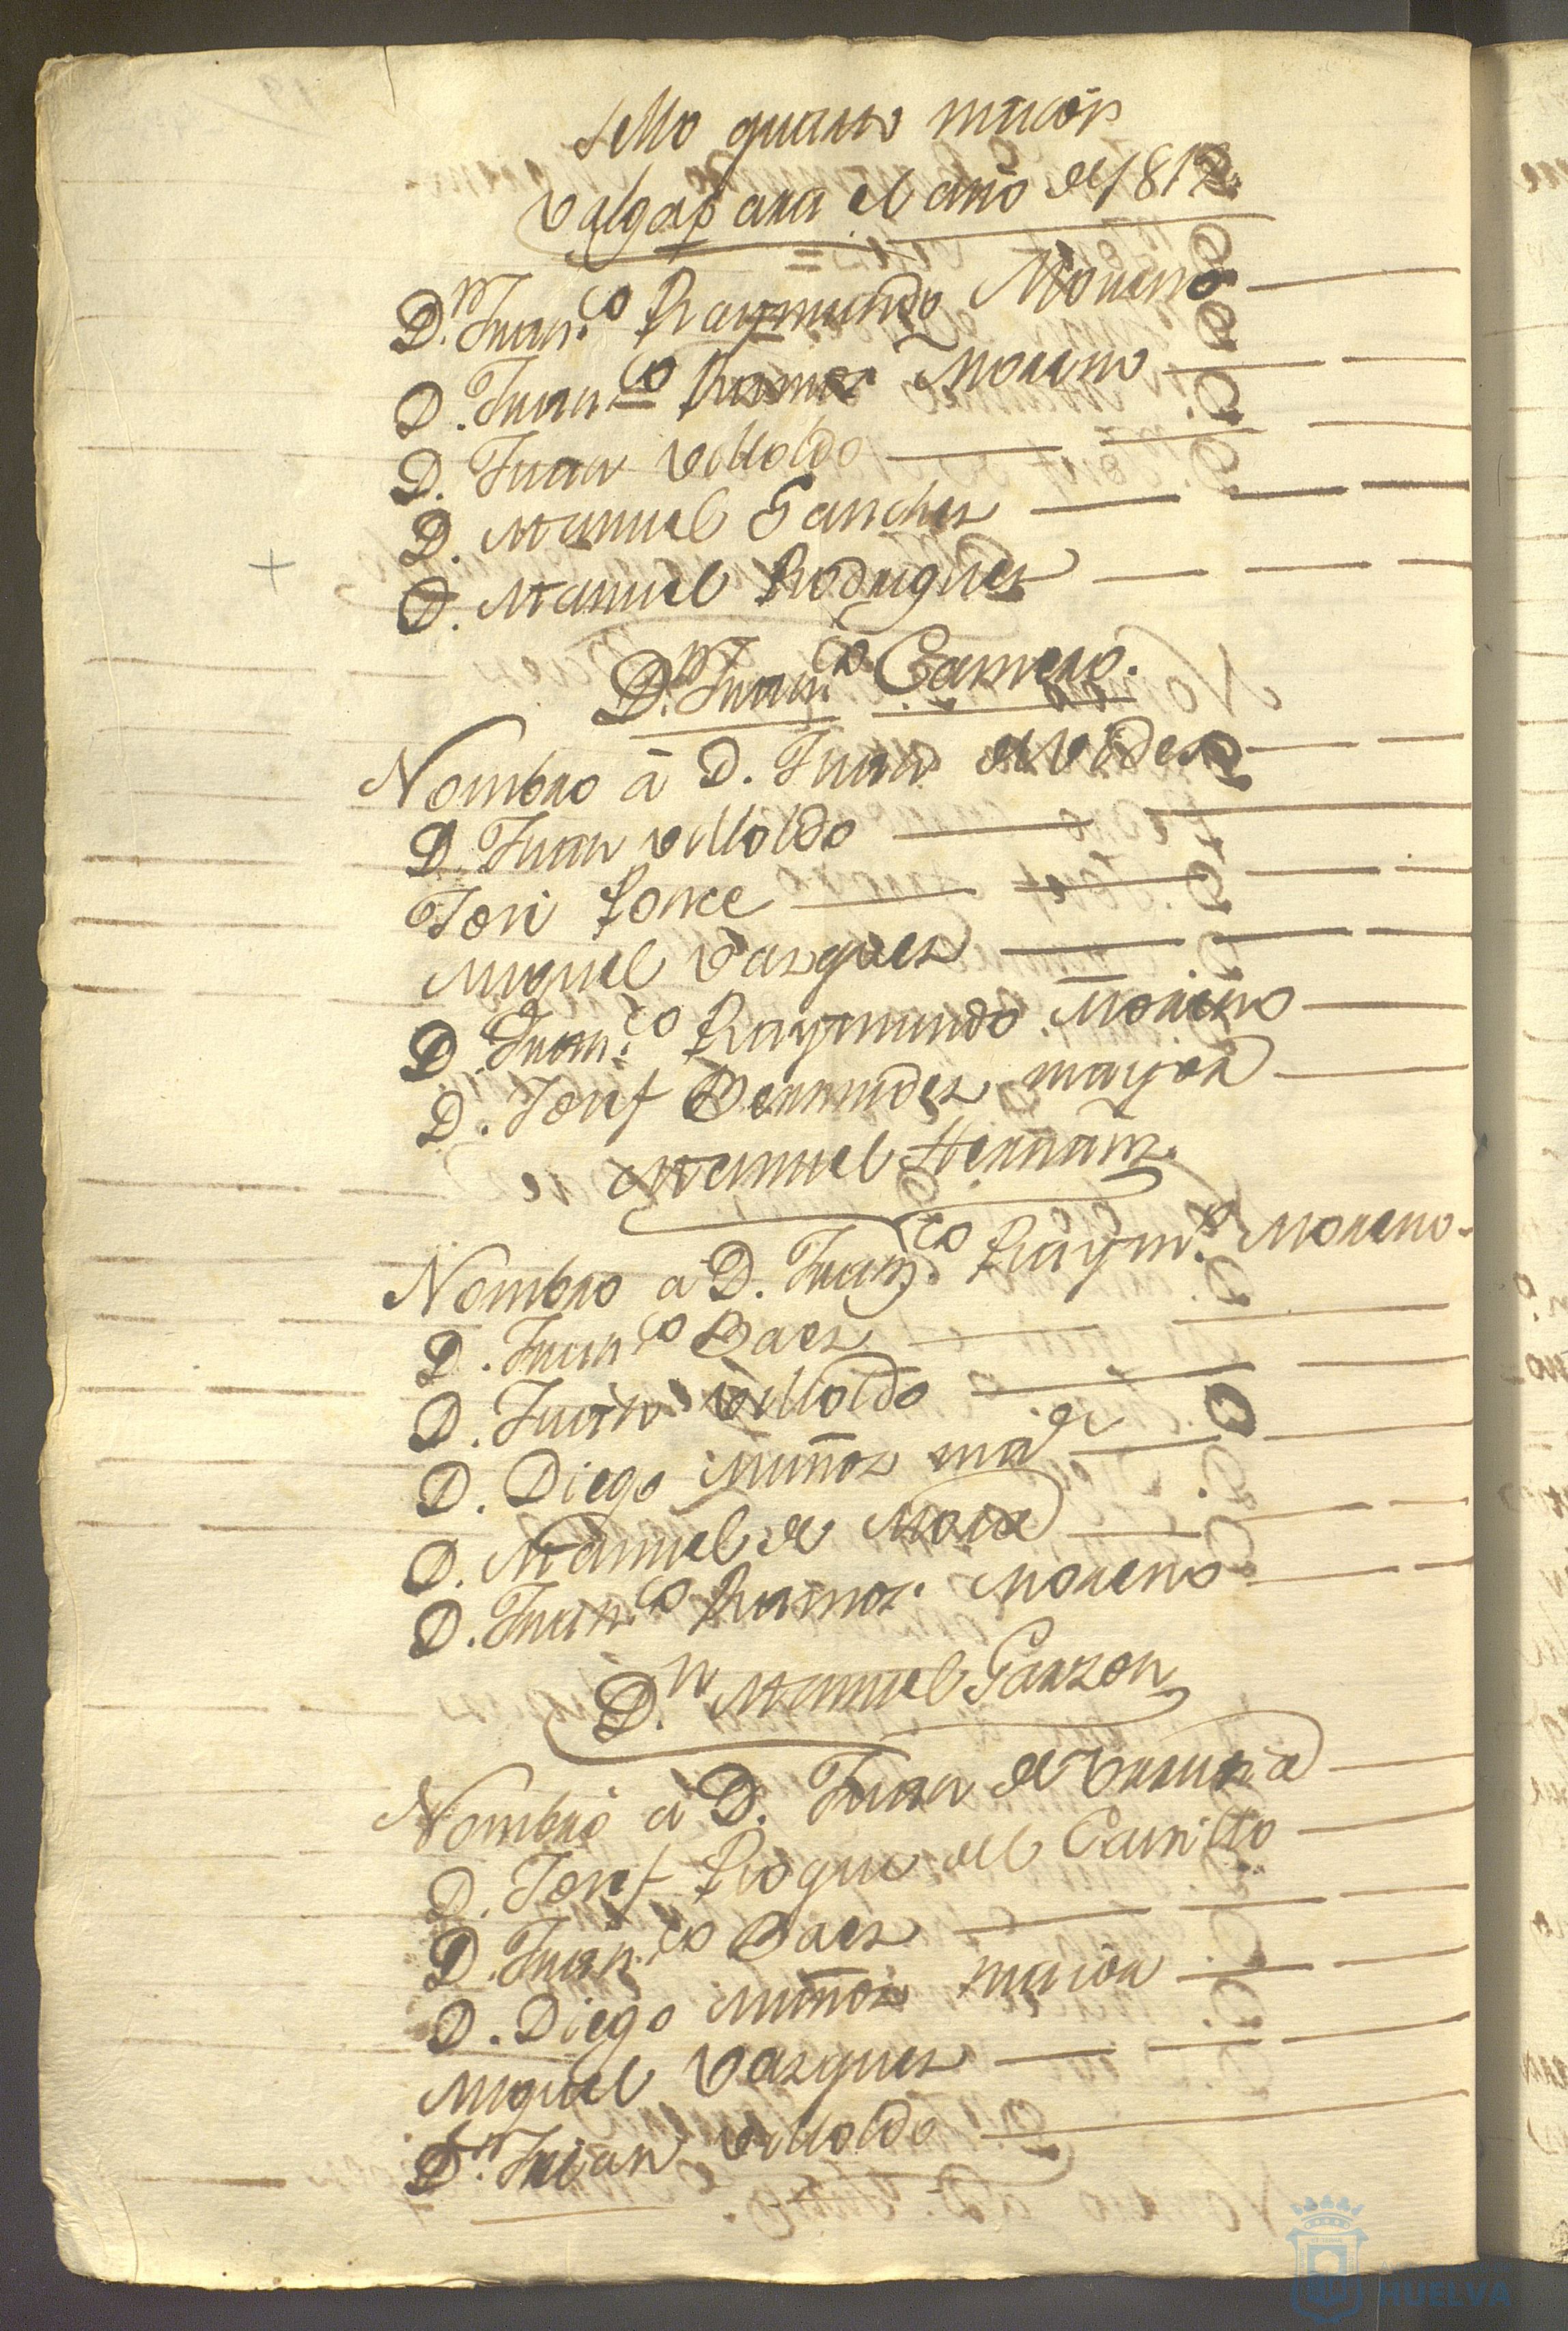 Sello quarto mrs
Valga para el año de 1812
D.n Fran.co Raymundo Moreno
D. Fran.co Ramos Moreno
D. Juan Villoldo
D. Manuel Sanchez
D. Manuel Rodriguez
D.n Fran.co Carnero.
Nombro â D. Juan de
D. Juan Villoldo
Jose Ponce
Miguel Vazquez
D. Fran.co Raymundo Moreno
D. Josef Bermudez mayor
Manuel Hernanz.
Nombro a D. Fran.co Raym.do Moreno
D. Fran.co Baez
D. Juan Villoldo
D. Diego Muñoz ma
D. Manuel de Mora
D. Fran.co Ramos Moreno
D.n Manuel Garzon
Nombro a D. Juan de
D. Josef Roque del Castillo
D. Fran.co Baez
D. Diego Muñoz maior
Miguel Vazquez
D.n Juan Villoldo
HUELVA